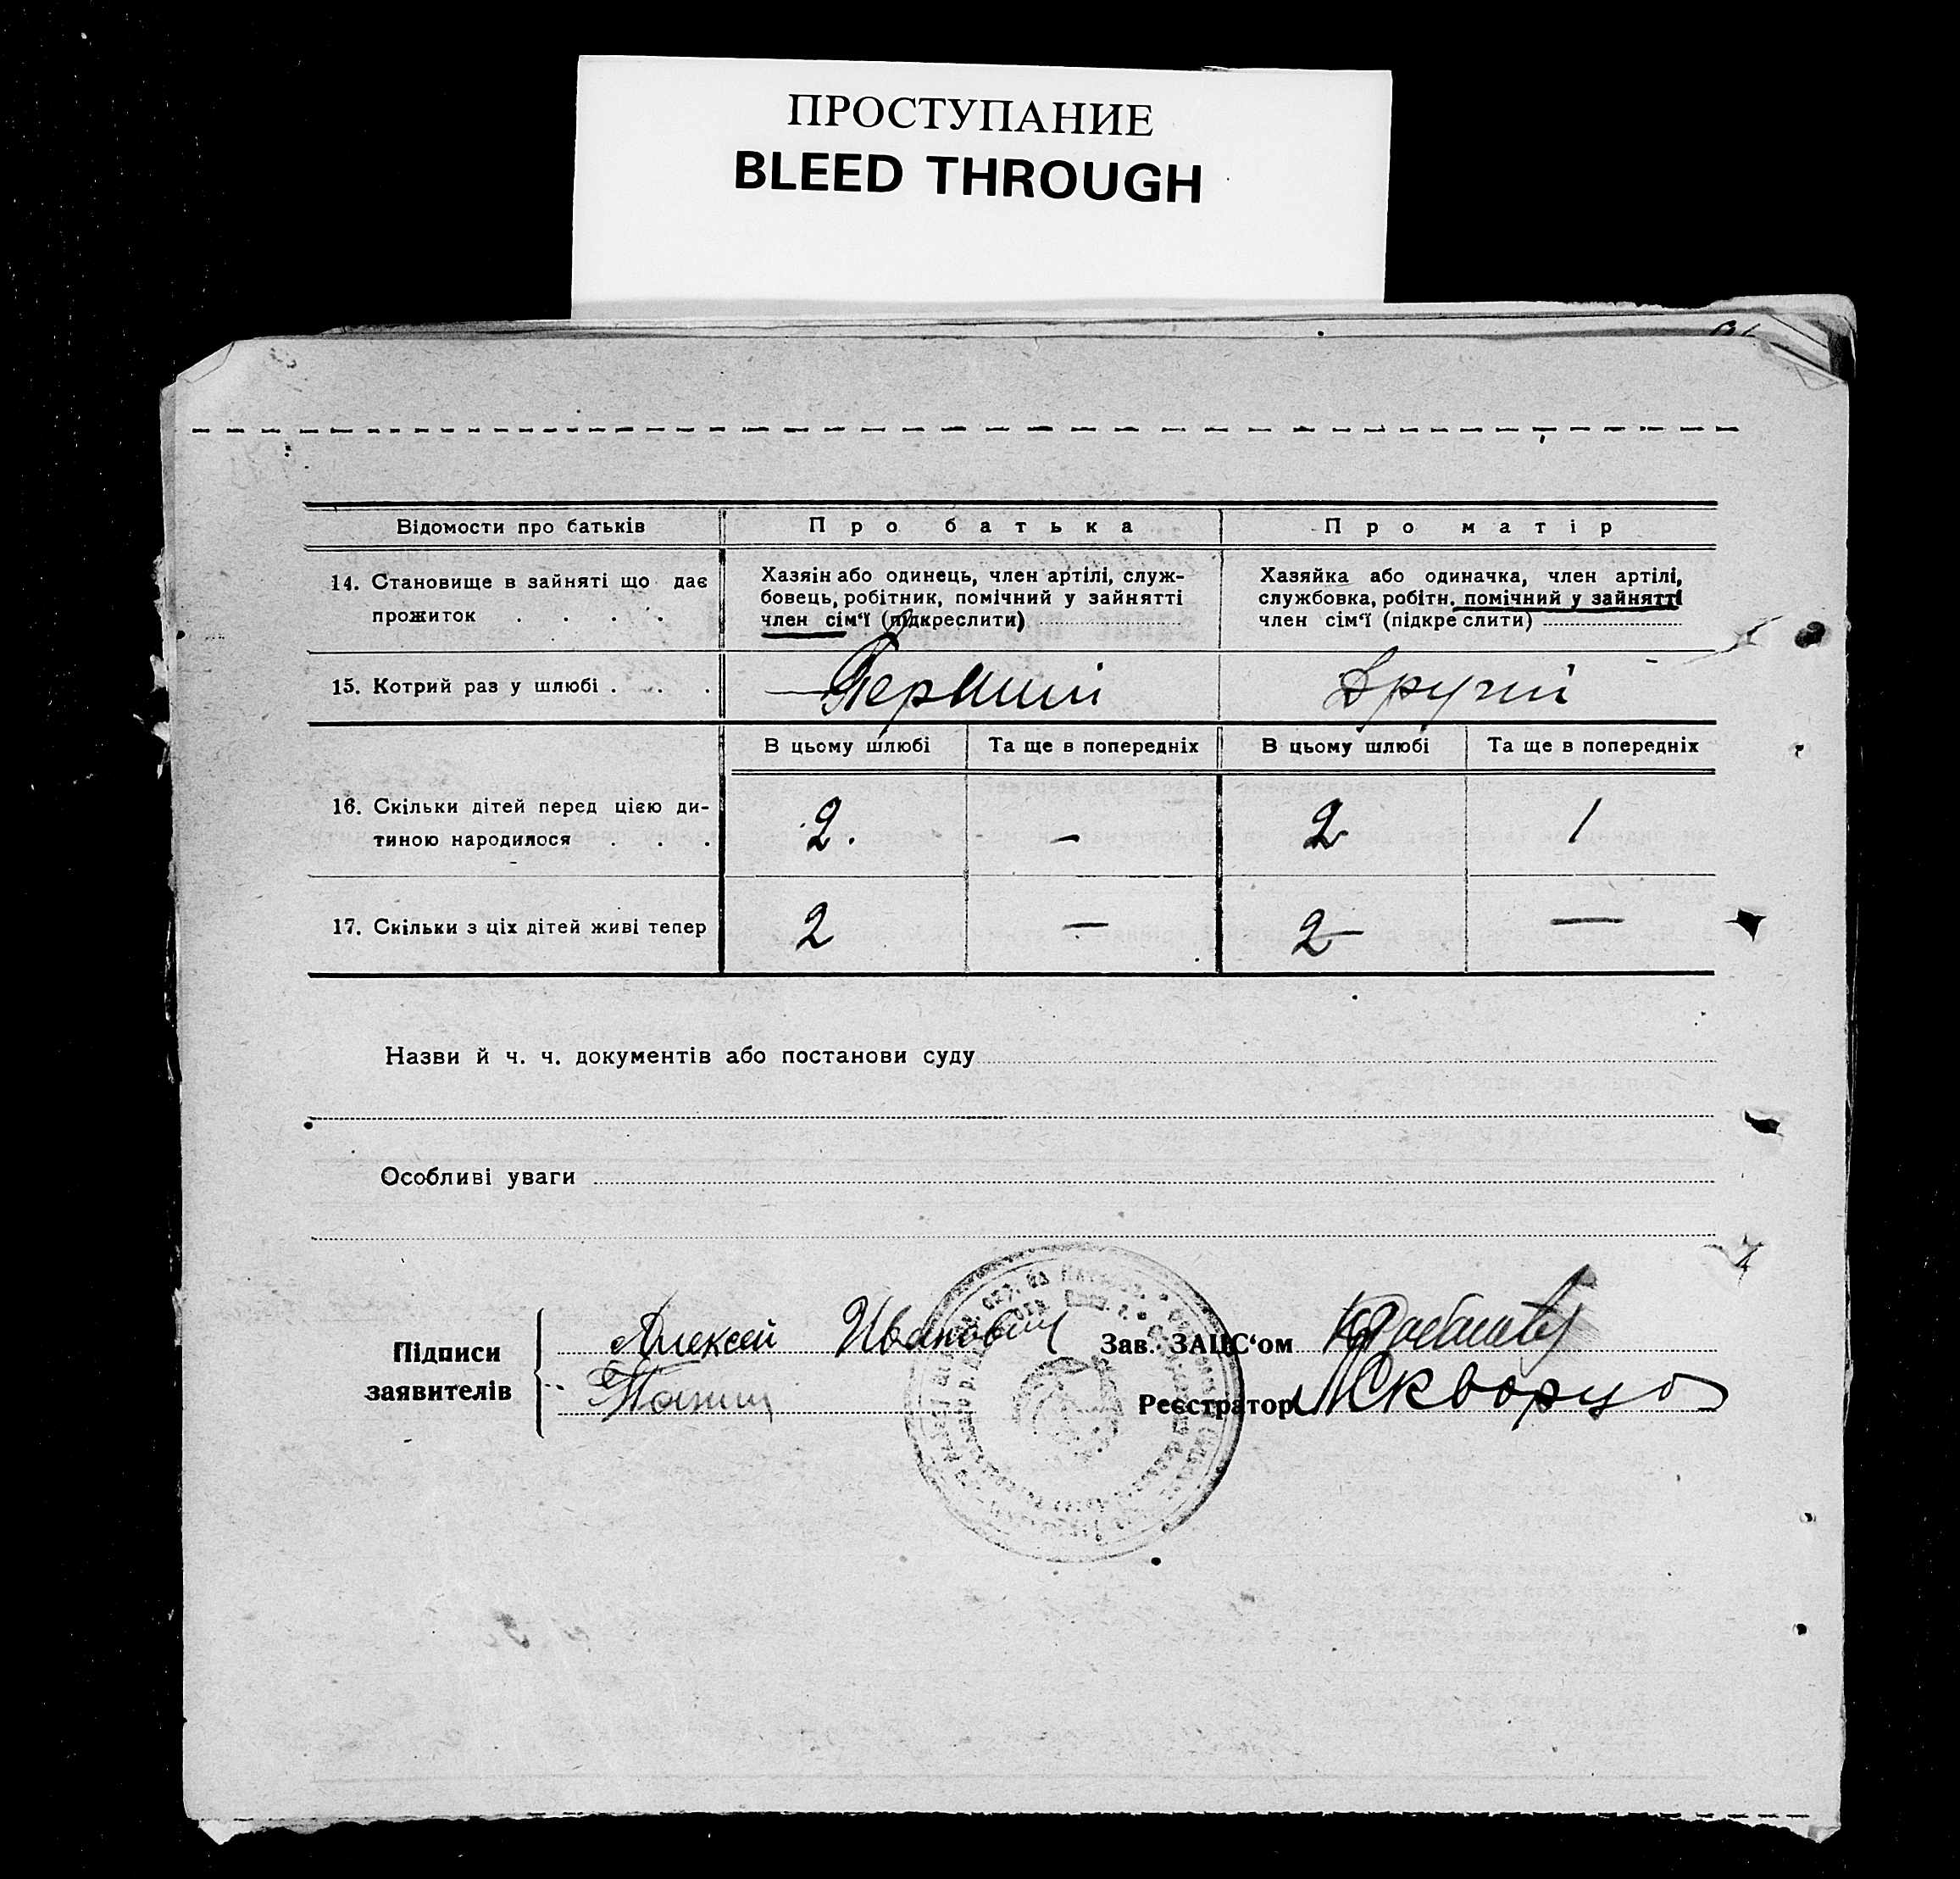 ПРОСТУПАНИЕ
BLEED THROUGH
Відомости про батьків
Про батька
Про матір
14. Становище в зайняті що дає
прожиток . . . .
Хазяін або одинець, член артілі, служ-
бовець, робітник, помічний у зайнятті
член сім'ї (підкреслити)
Хазяйка або одиначка, член артілі,
службовка, робітн. помічний у зайнятті
член сім'ї (підкреслити)
15. Котрий раз у шлюбі . . .
Перший
Другий
В цьому шлюбі
Та ще в попередніх
В цьому шлюбі
Та ще в попередніх
16. Скільки дітей перед цією ди-
тиною народилося . . .
2.
—
2
1
17. Скільки з ціх дітей живі тепер
2
—
2
—
Назви й ч. ч. документів або постанови суду
Особливі уваги
Підписи
заявителів
Алексей Иванович
Зав. ЗАЦС'ом
Реєстратор
Скворцо